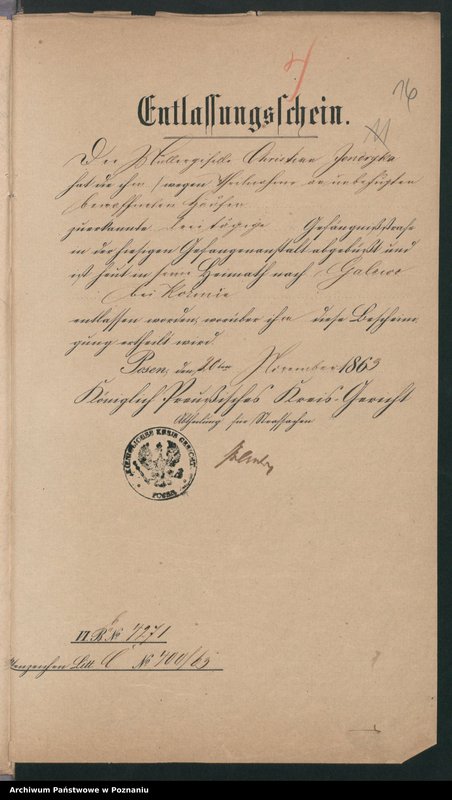 7
16
11
Entlassungsschein.
Der Müllergeselle Christian
hat die ihm wegen Theilnahme an unbefugten
bewaffneten Haufen
zuerkannte dreitägige Gefängnißstrafe
in der hiesigen Gefangenanstalt abgebüßt und
ist heut in seine Heimath nach
bei
entlassen worden, worüber ihm diese Bescheini-
gung ertheilt wird.
Posen, den 20ten November 1863
Königlich Preußisches Kreis-Gericht
Abtheilung für Strafsachen
KOENIGLICHES KREIS GERICHT
POSEN
II B No 4271
Aktenzeichen Litt C No 400/63
Archiwum Państwowe w Poznaniu